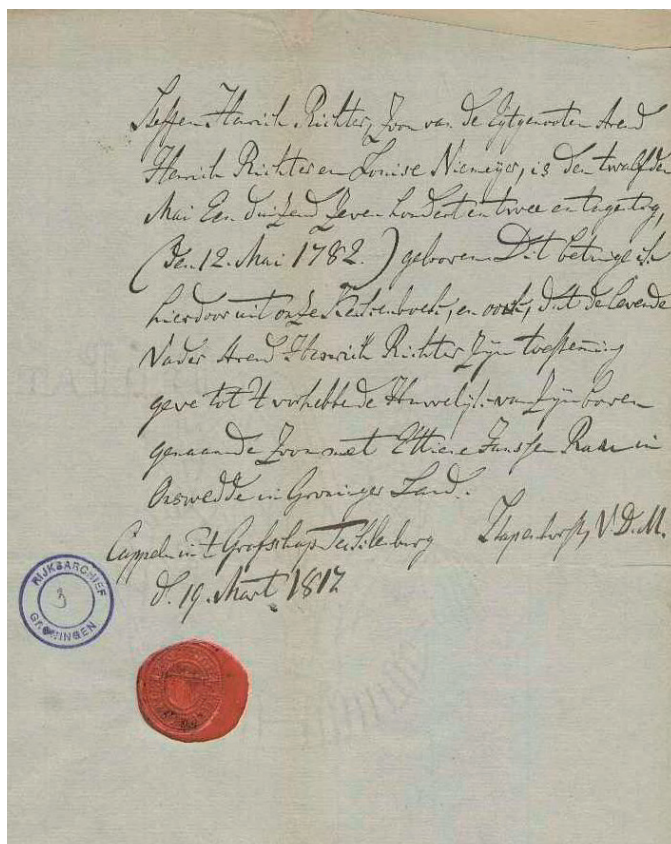 Steffen Henrich Richter, Zoon van de Egtgenooten Arend
Henrich Richter en Louise Niemeyer, is den twalfden
Mai Een duizend Zeven hondert en twee en tagentig,
(den 12. Mai 1782.) geboren. Dit betuige ik
hierdoor uit onze Kerkenboek, en ook, dat de levende
Vader Arend Henrich Richter zyn toestemming
geve tot 't vorhebbende Huwelyk van zyn boven
genaamde Zoon met Ettiene Janssen in
Onswedde in Groninger Land.
Cappeln in 't Grafschap Tecklenburg V. D. M.
d. 19. Mart 1812
RIJKSARCHIEF
3
GRONINGEN